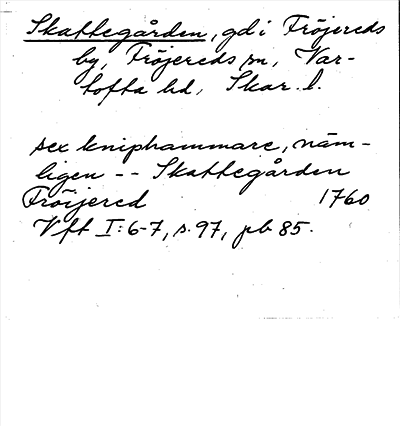 Skattegården, gd i Fröjereds
by, Fröjereds sn, Var-
tofta hd, Skar. l.
sex kniphammare, näm-
ligen -- Skattegården
Fröijered 1760
Vft I: 6-7, s. 97, pb 85.